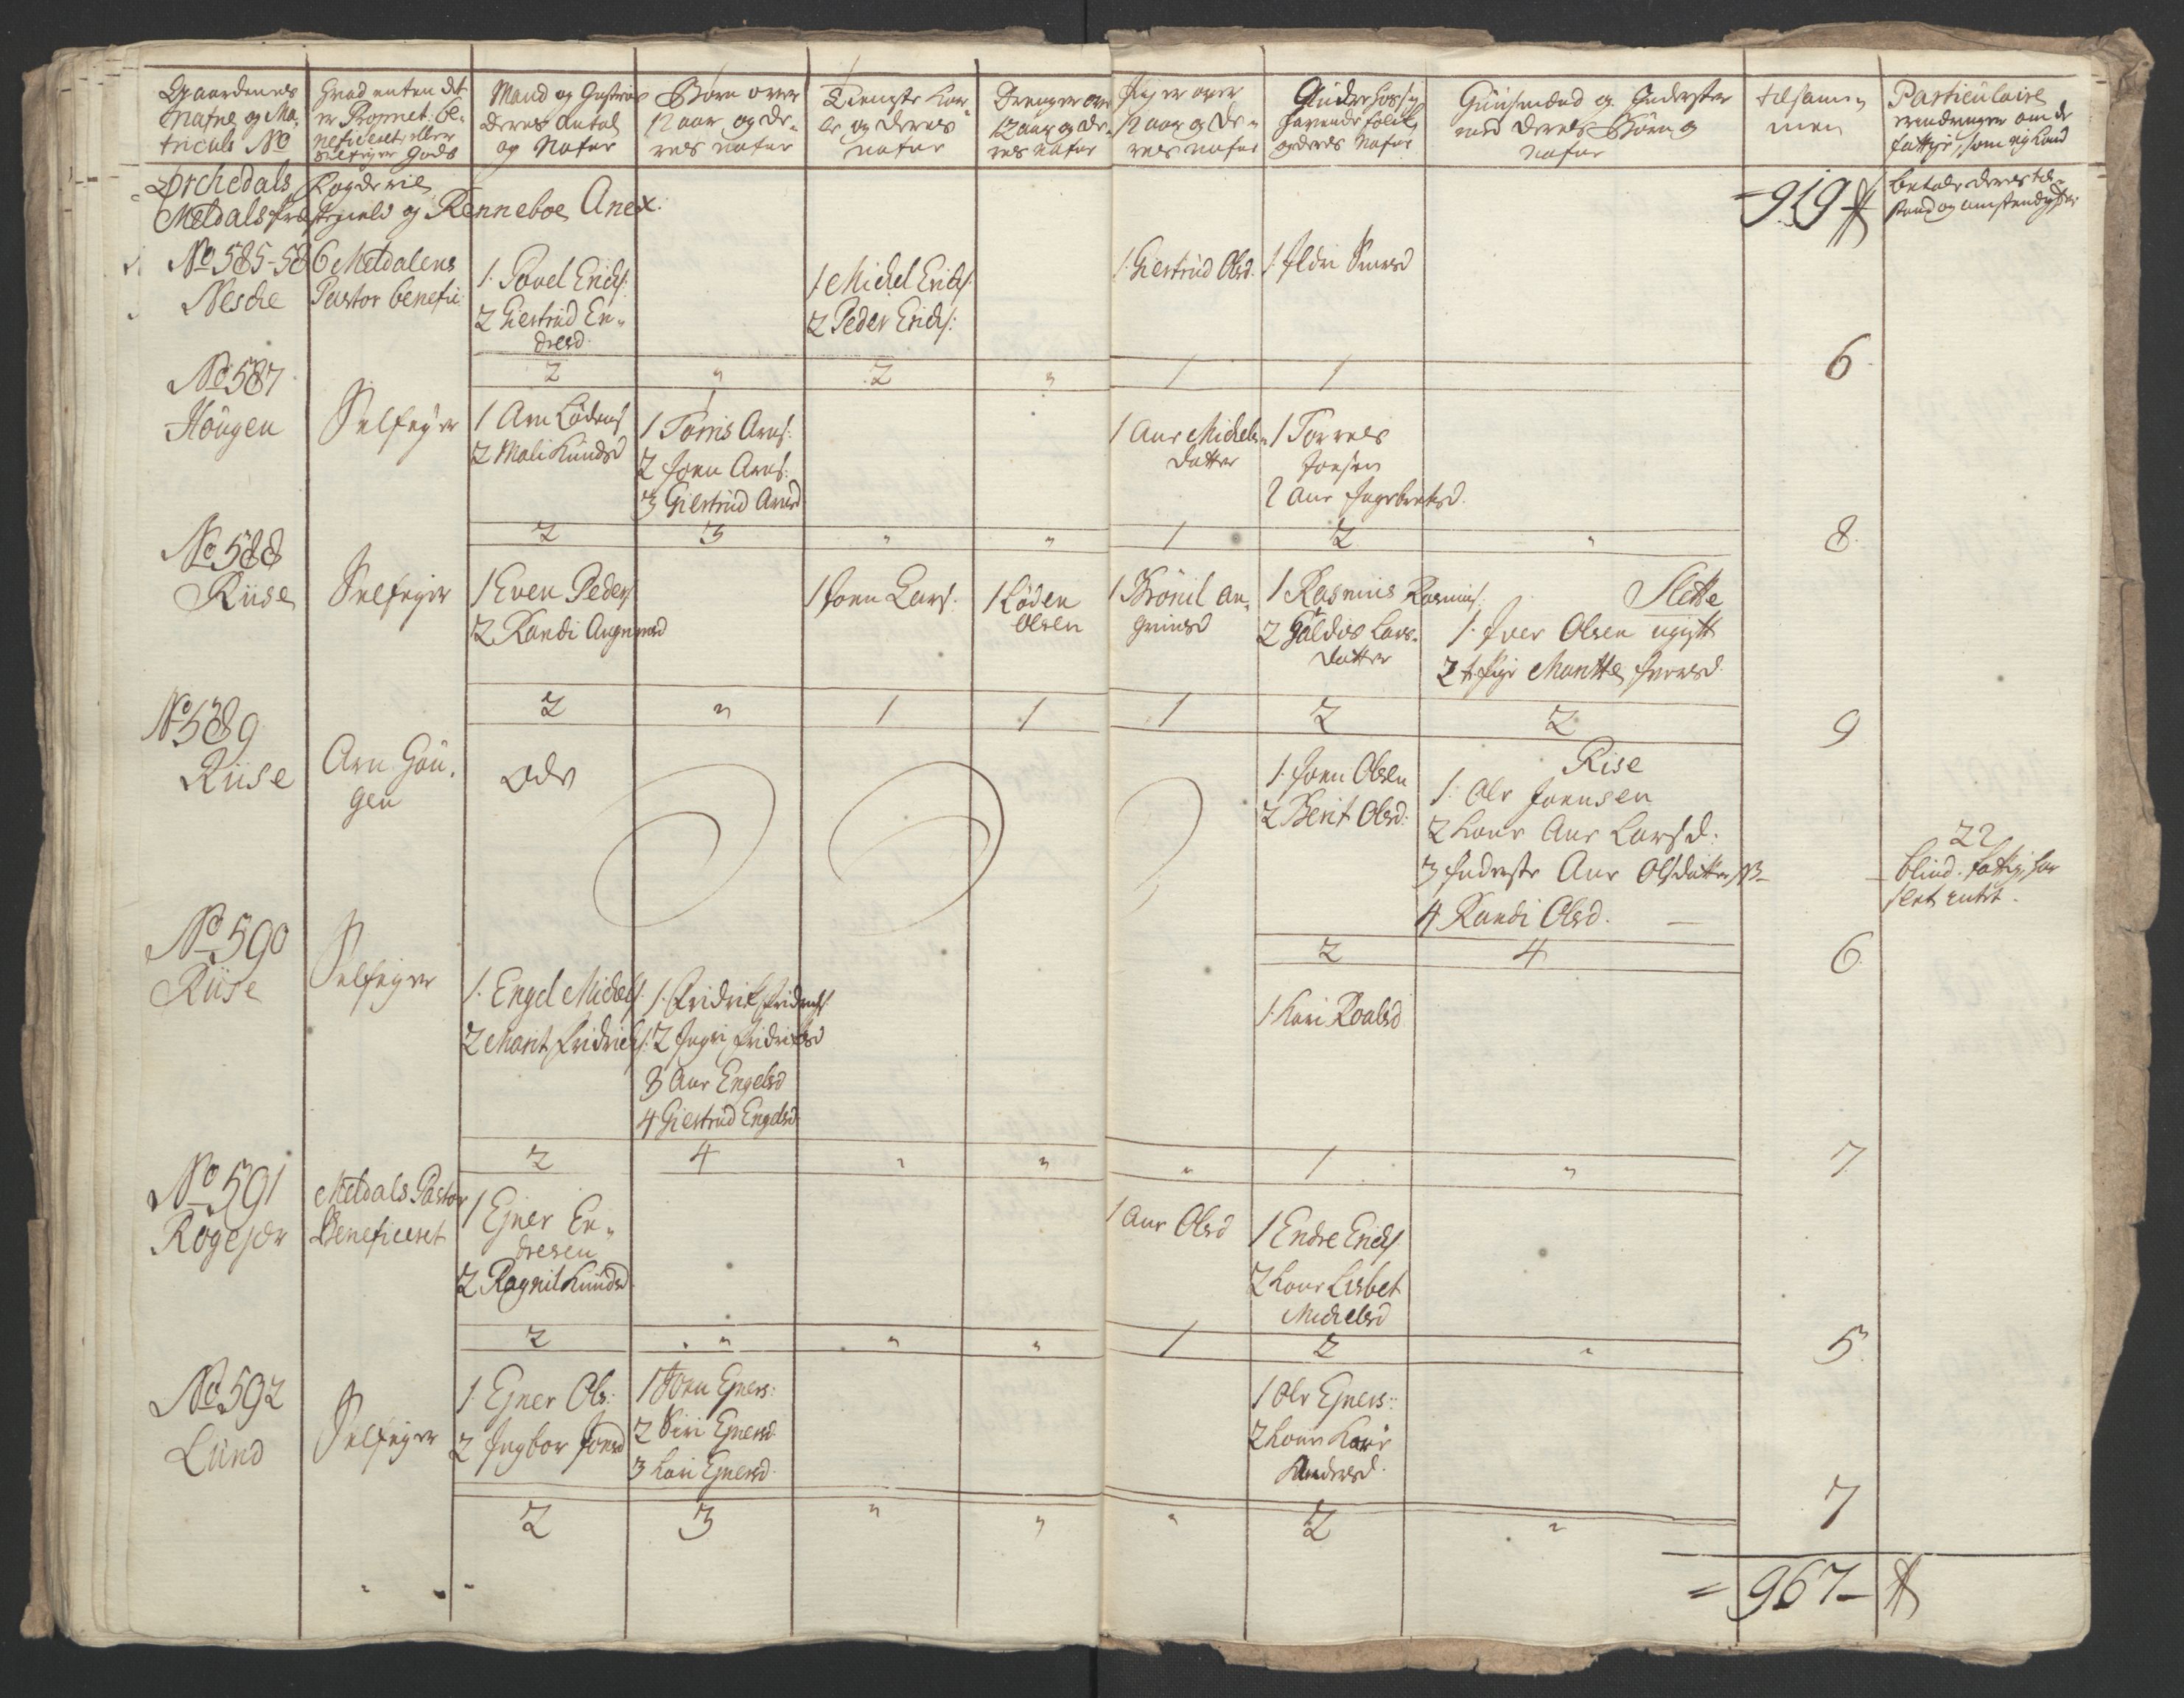 Gaardenes Nafne og Matriculs No
Hvad enten det er Propriet. beneficeret eller Selfeyer Gods
Mand og Hustrue Deres Antal og Nafne
Børn over 12 aar og deres nafne
Tieneste Karle og deres nafne
Drenger over 12 aar og deres nafne
Piger over 12 aar og deres nafne
Andre hos sig havende folck og deres Nafne
Huusmænd og Inderster med deres Børn og nafne
tilsammen
Particulaire erindringer om de fattige, som ey kand betale deres tilstand og omstendigheder
Orchedals Fogderie
Meldals Præstegield og Renneboe Anex.
919
No 585-586 Meldalens
Nesche Pastor benefic:
1. Povel Erichs:
2 Giertrud Endresd.
1 Michel Erichs:
2 Peder Erichs:
1. Giertrud Olsd.
1. Ildri
2 " 2 " 1 1 6
No 587
Hougen
Selfeyer
1 Arn Lodens
2 Mali Knudsd
1 Tørris Arns:
2 Joen Arns:
3 Giertrud Arnsd
1 Ane Michels datter
1 Torres Joensen
2 Ane Ingebretsd.
2 3 " " 1 2 " 8
No 588
Riise
Selfeyer
1 Even Peders
2 Randi Arngrimsd
1 Joen Lars:
1 Loden Olsen
1 Brønil Angrimsd
1 Rasmus Rasmus:
2 Goldio Larsdatter
Slette
1. Iver Olsen ugift
2 t. Pige Maritte Iversd.
2 " 1 1 1 2 2 9
No 589
Riise
Arn Hougen
Øde
1. Joen Olsen
2 Berit Olsd:
Rise
1. Ole Joensen
2 kone Ane Larsd:
3 Inderste Ane Olsdatter NB
4 Randi Olsd.
22
blind. fattig, har slet intet.
2 4 6
No 590
Riise
Selfeyer
1. Engel Michels:
2 Marit Fridrichs:
1. Fridrik Fridrichs:
2 Ingri Fridriksd
3 Ane Engelsd
4 Giertrud Engelsd.
1. Kari Roalsd
2 4 " " " 1 " 7
No 591
Rogesør
Meldals Pastor Beneficeret
1 Ejner Endresen
2 Ragnil Knudsd.
1 Ane Olsd
1 Endre Erichs.
2 Kone Lisbet Michelsd
2 " " " 1 2 " 5.
No 592
Lund
Selfeyer
1. Ejner Ols:
2 Ingbor Jonsd
1 Joen Ejners:
2 Siri Ejnersd.
3 Kari Ejnersd.
1 Ole Ejners:
2 Kone Kari Andersd.
2 3 " " " 2 " 7
= 967